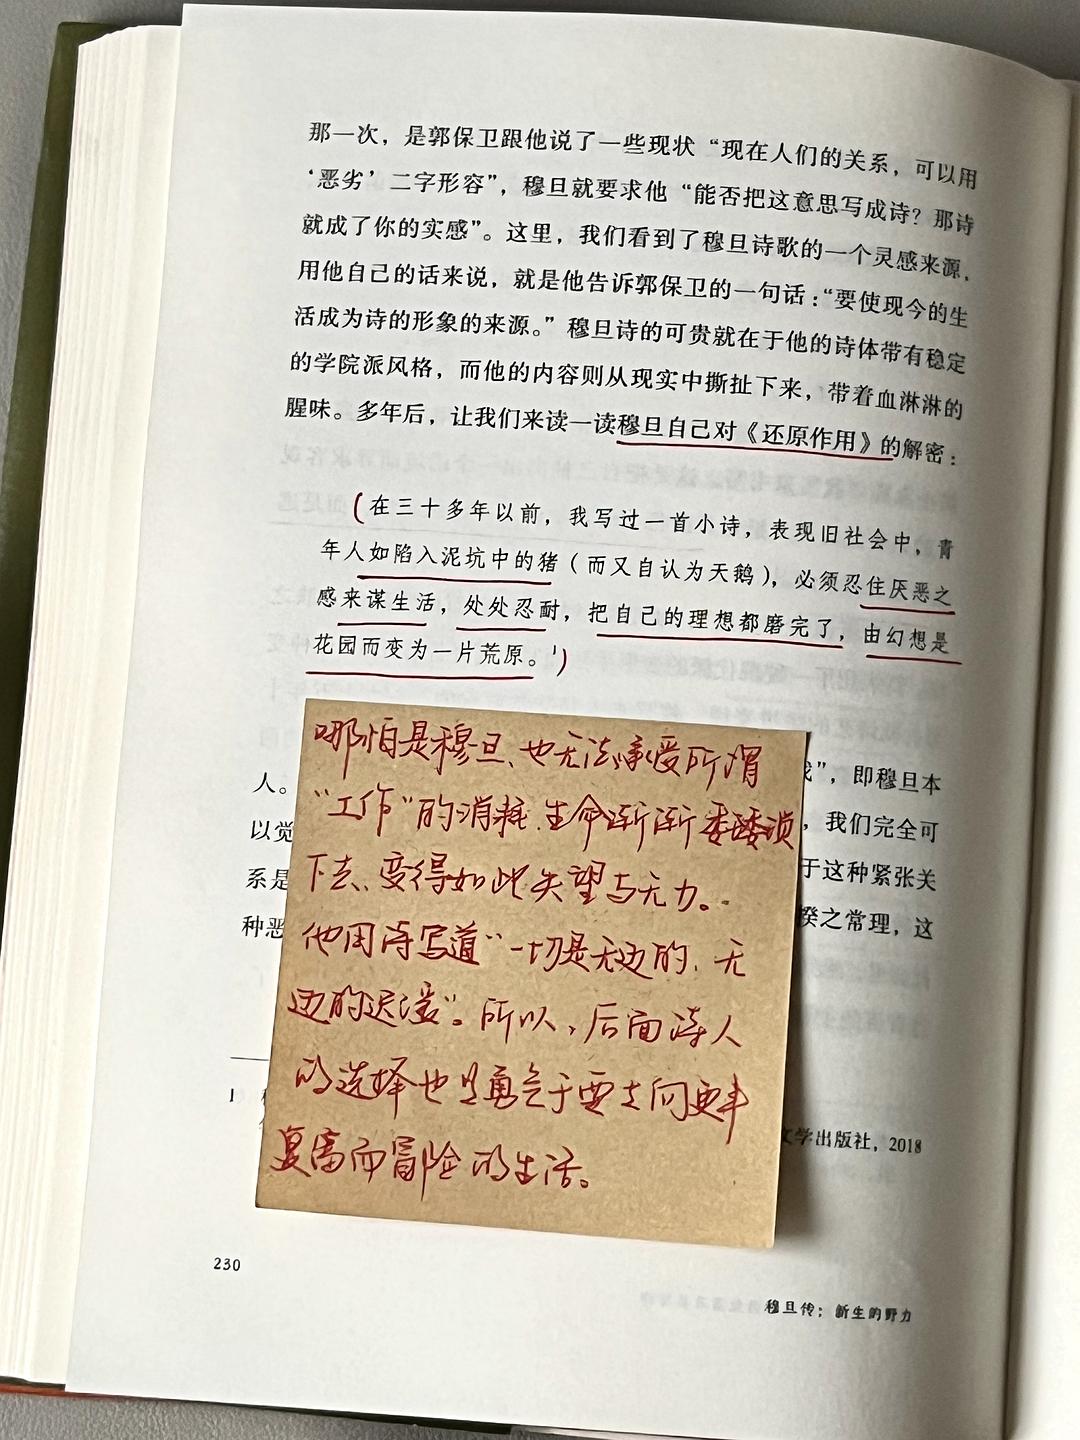 那一次，是郭保卫跟他说了一些现状“现在人们的关系，可以用
‘恶劣’二字形容”，穆旦就要求他“能否把这意思写成诗？那诗
就成了你的实感”。这里，我们看到了穆旦诗歌的一个灵感来源，
用他自己的话来说，就是他告诉郭保卫的一句话：“要使现今的生
活成为诗的形象的来源。”穆旦诗的可贵就在于他的诗体带有稳定
的学院派风格，而他的内容则从现实中撕扯下来，带着血淋淋的
腥味。多年后，让我们来读一读穆旦自己对《还原作用》的解密：
（在三十多年以前，我写过一首小诗，表现旧社会中，青
年人如陷入泥坑中的猪（而又自认为天鹅），必须忍住厌恶之
感来谋生活，处处忍耐，把自己的理想都磨完了，由幻想是
花园而变为一片荒原。1）
哪怕是穆旦、也无法承受所谓
“工作”的消耗、生命渐渐委琐
下去、变得如此失望与无力。
他用诗写道“一切是无边的、无
边的迟缓”。所以，后面诗人
的选择也是勇气于要去向更丰
复富而冒险的生活。
”，即穆旦本
人。
，我们完全可
以觉
于这种紧张关
系是
揆之常理，这
种恶
1
文学出版社，2018
230
穆旦传：新生的野力